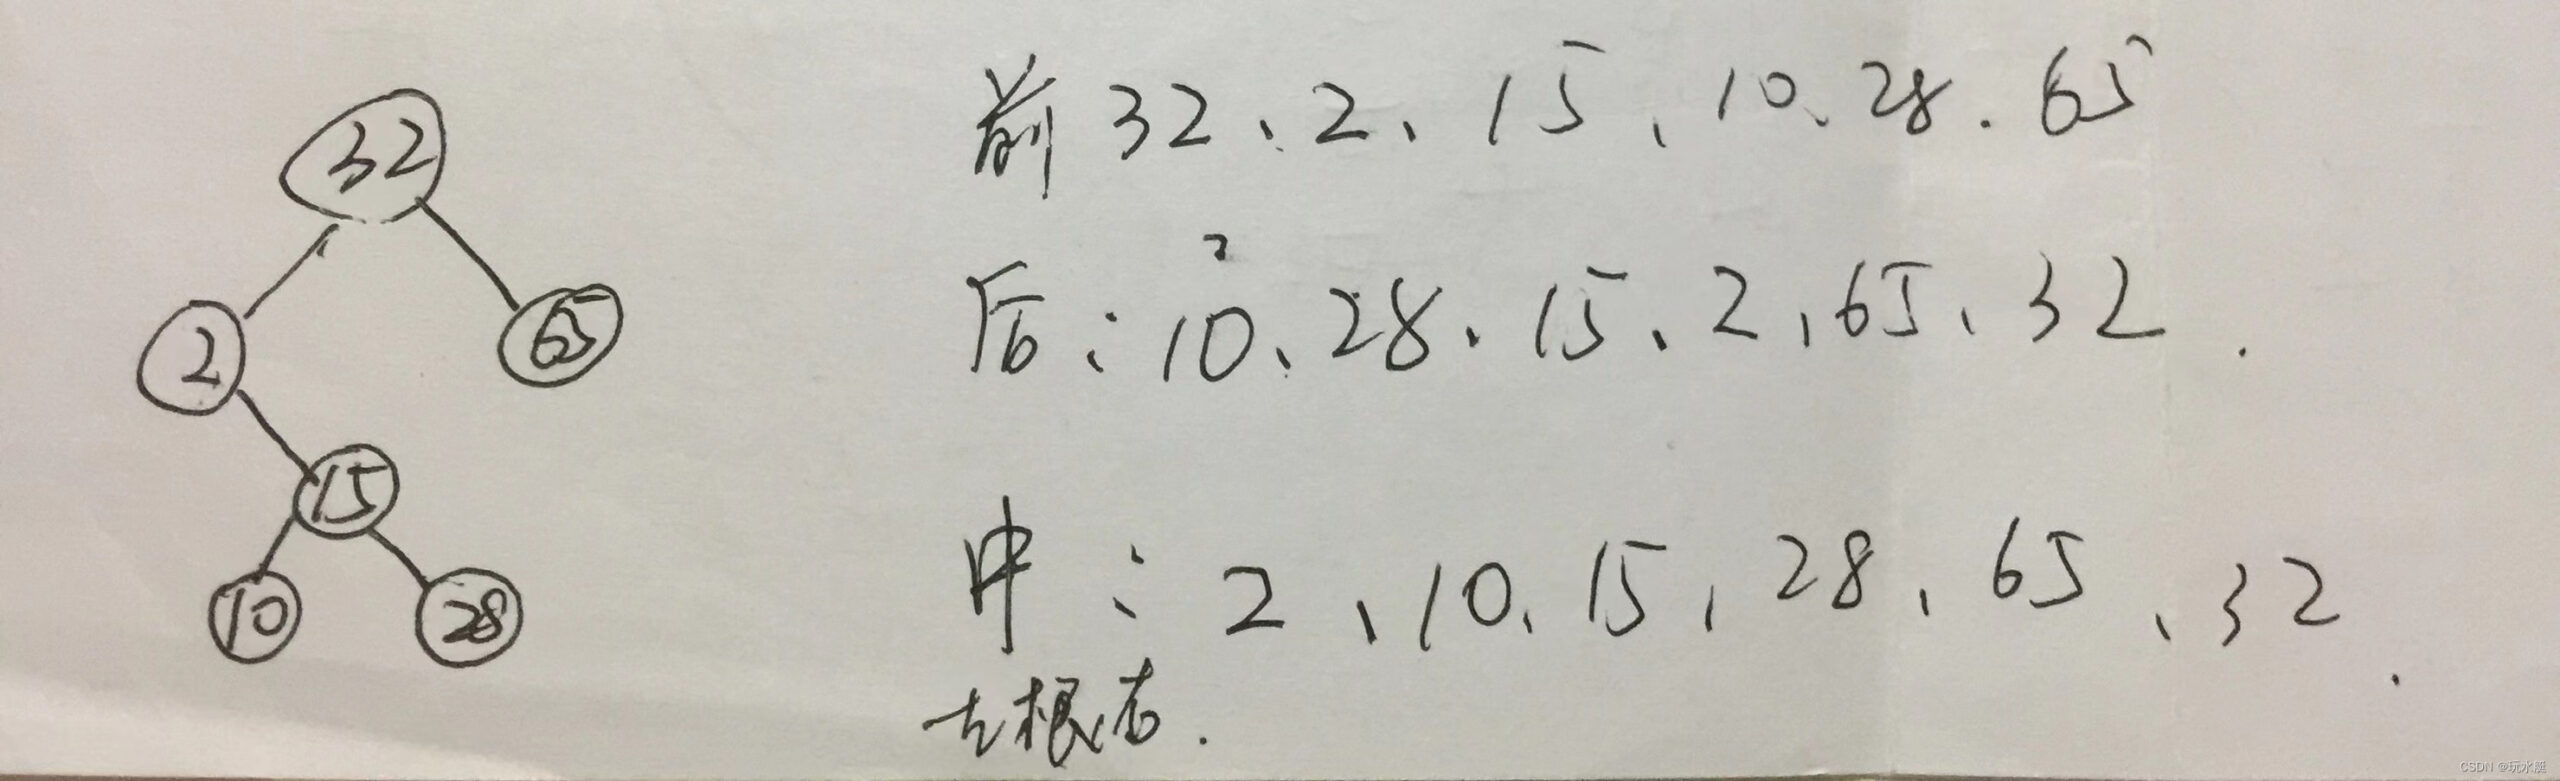 32
2
65
15
10
28
前 32、2、15、10、28.65
2
后:10、28、15、2、65、32.
中:2、10、15、28、65、32.
左根右.
CSDN @玩水艇